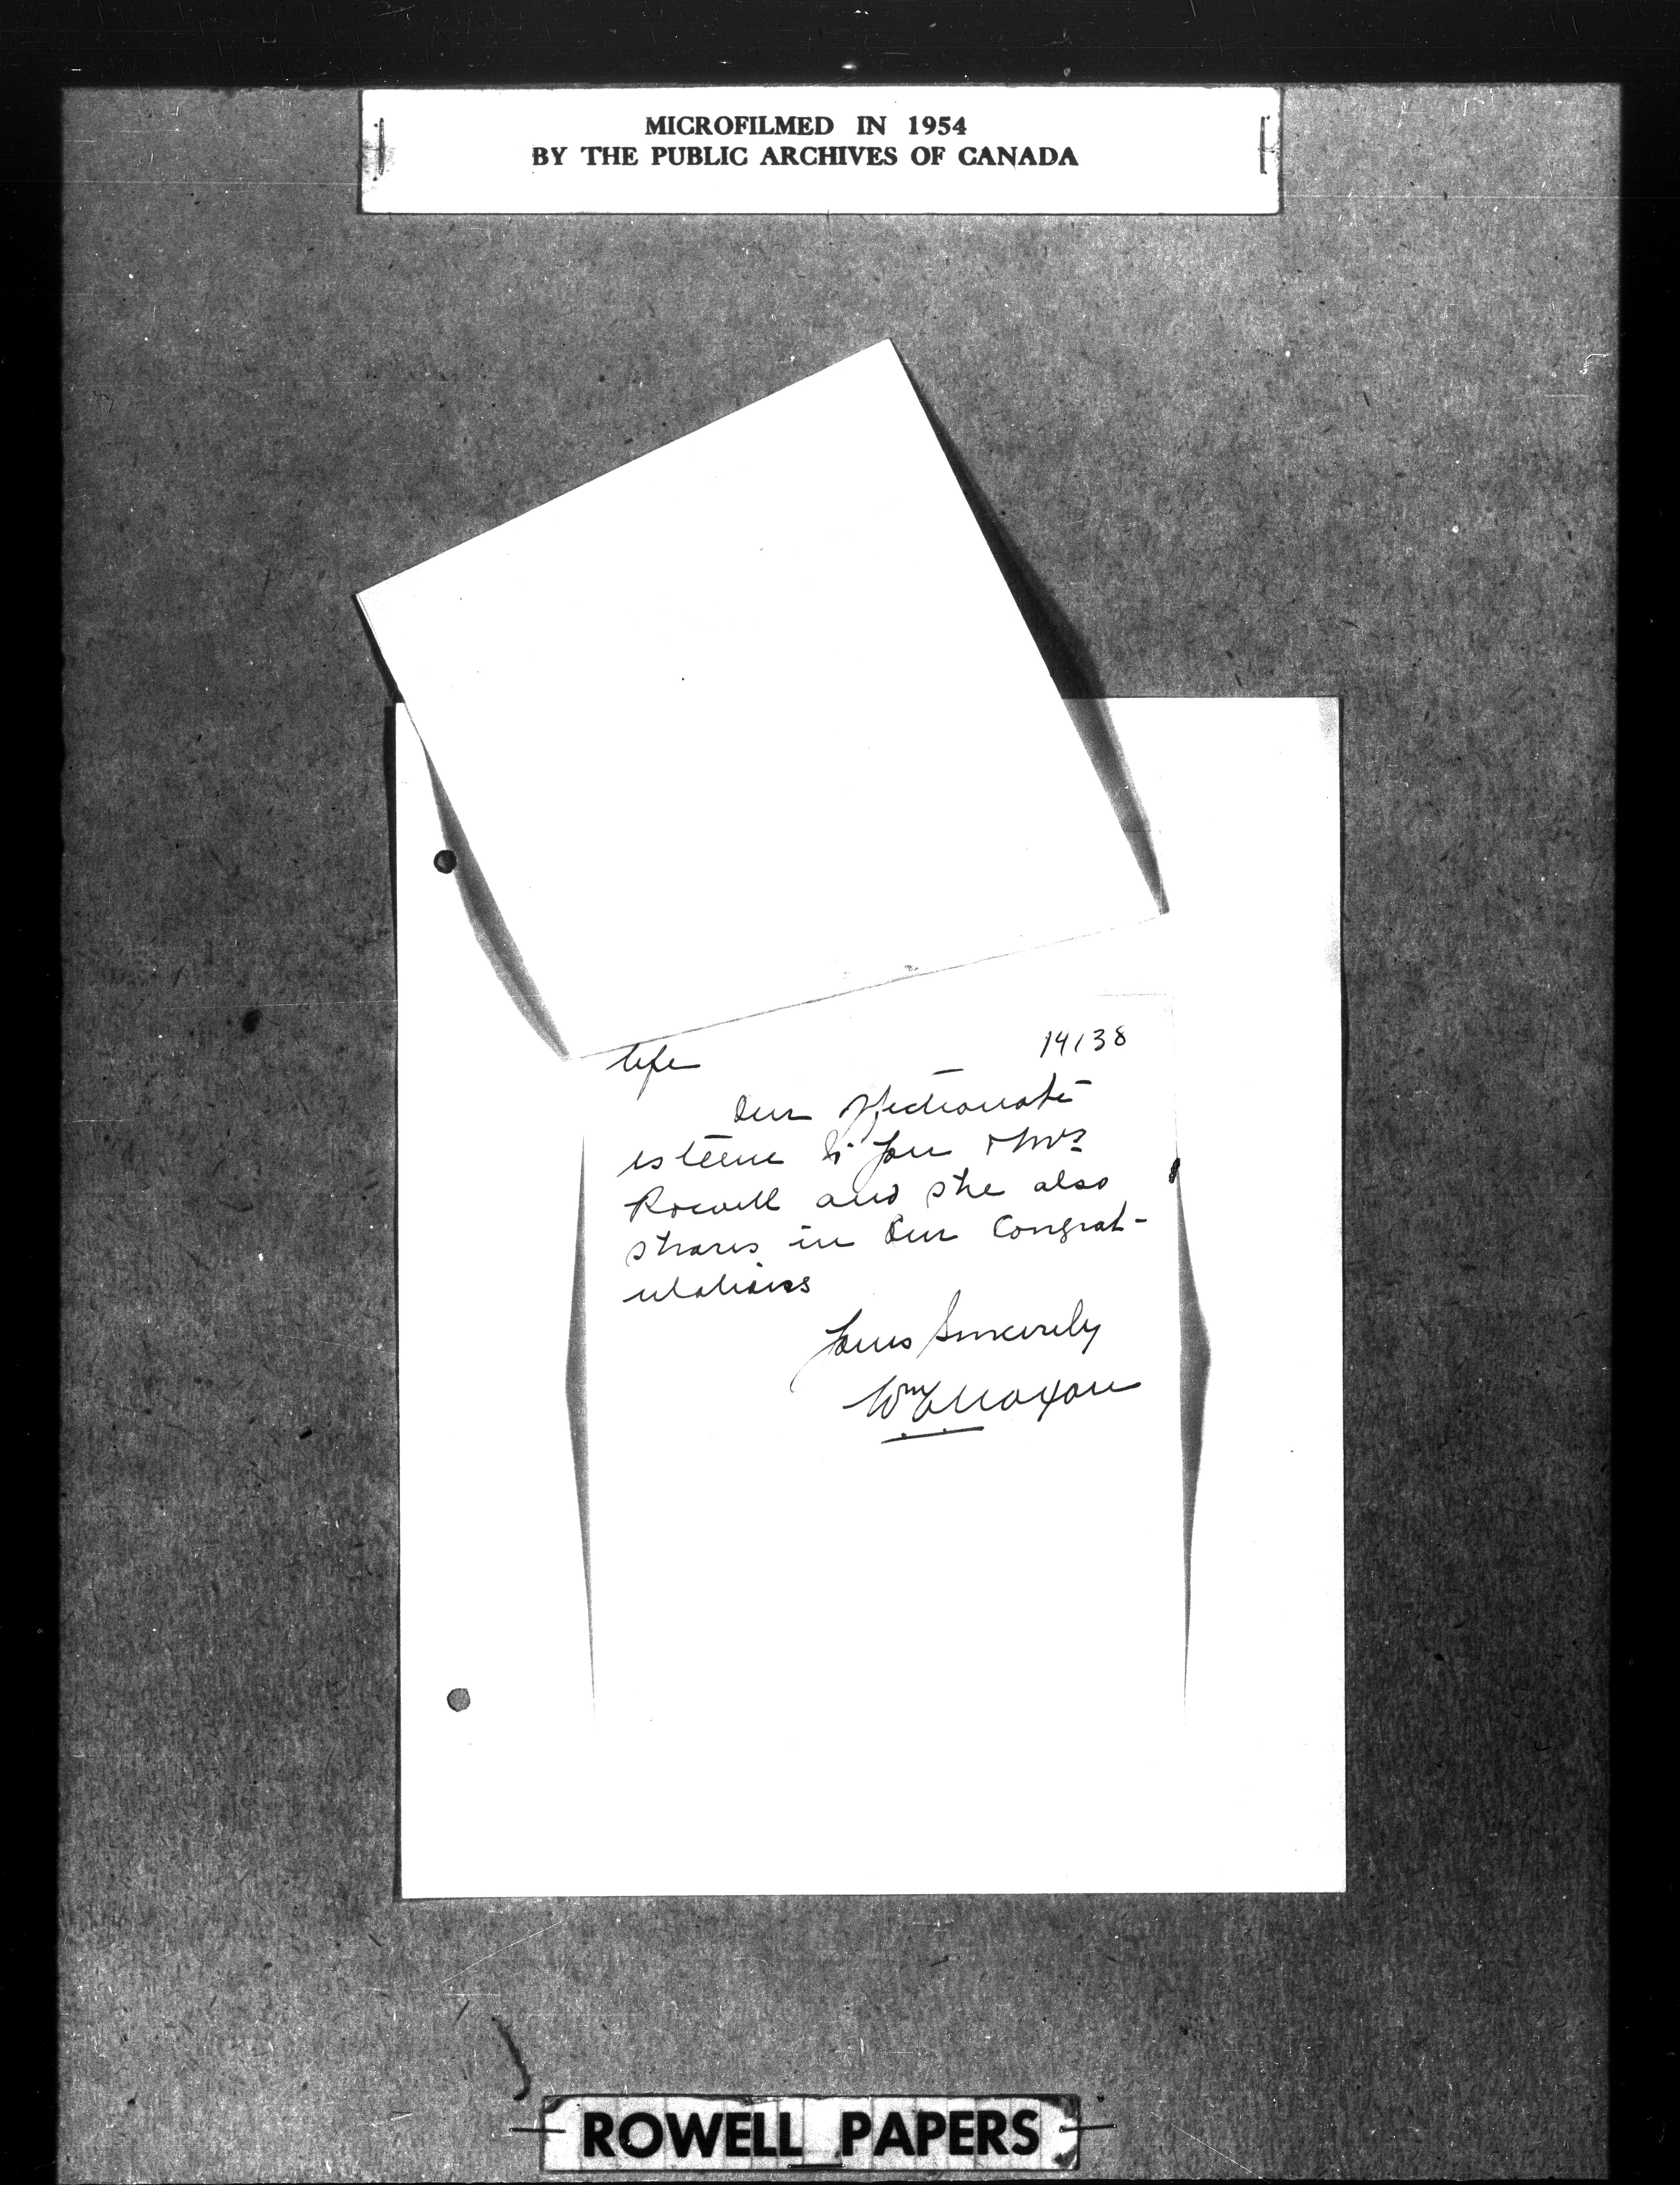 MICROFILMED IN 1954
BY THE PUBLIC ARCHIVES OF CANADA
14138
life
Our affectionate
esteem to you & Mrs
Rowell and she also
shares in our Congrat-
ulations
Yours Sincerely
Wm
ROWELL PAPERS